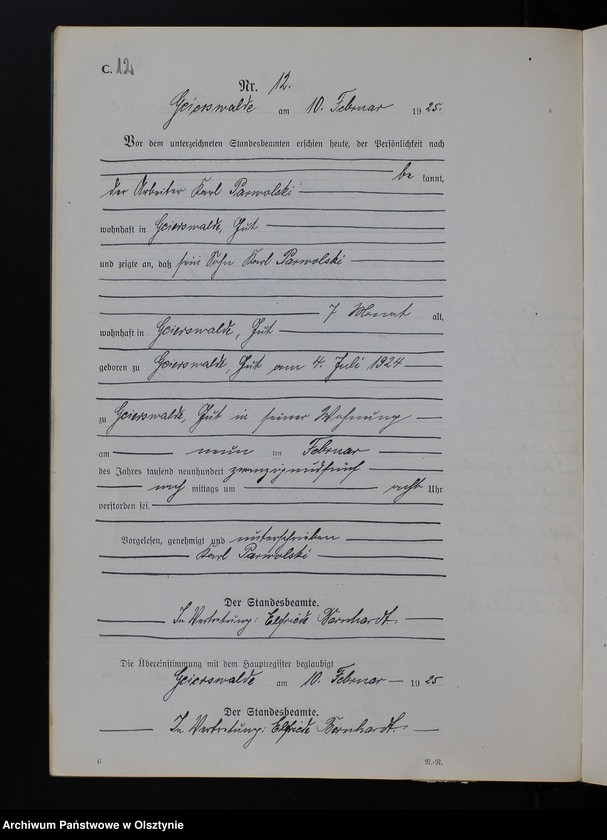 C. 12
Nr. 12.
Geierswalde am 10. Februar 1925.
Vor dem unterzeichneten Standesbeamten erschien heute, der Persönlichkeit nach
be kannt,
der Arbeiter Karl Parwolski
wohnhaft in Geierswalde, Gut
und zeigte an, daß sein Sohn Karl Parwolski
7 Monat alt,
wohnhaft in Geierswalde, Gut
geboren zu Geierswalde, Gut am 4. Juli 1924
zu Geierswalde, Gut in seiner Wohnung
am neun ten Februar
des Jahres tausend neunhundert zwanzigundfünf
nach mittags um acht Uhr
verstorben sei.
Vorgelesen, genehmigt und unterschrieben
Karl Parwolski
Der Standesbeamte.
In Vertretung: Elfriede Bernhardt
Die Übereinstimmung mit dem Hauptregister beglaubigt
Geierswalde am 10. Februar 1925
Der Standesbeamte.
In Vertretung: Elfriede Bernhardt
6 N.-R.
Archiwum Państwowe w Olsztynie